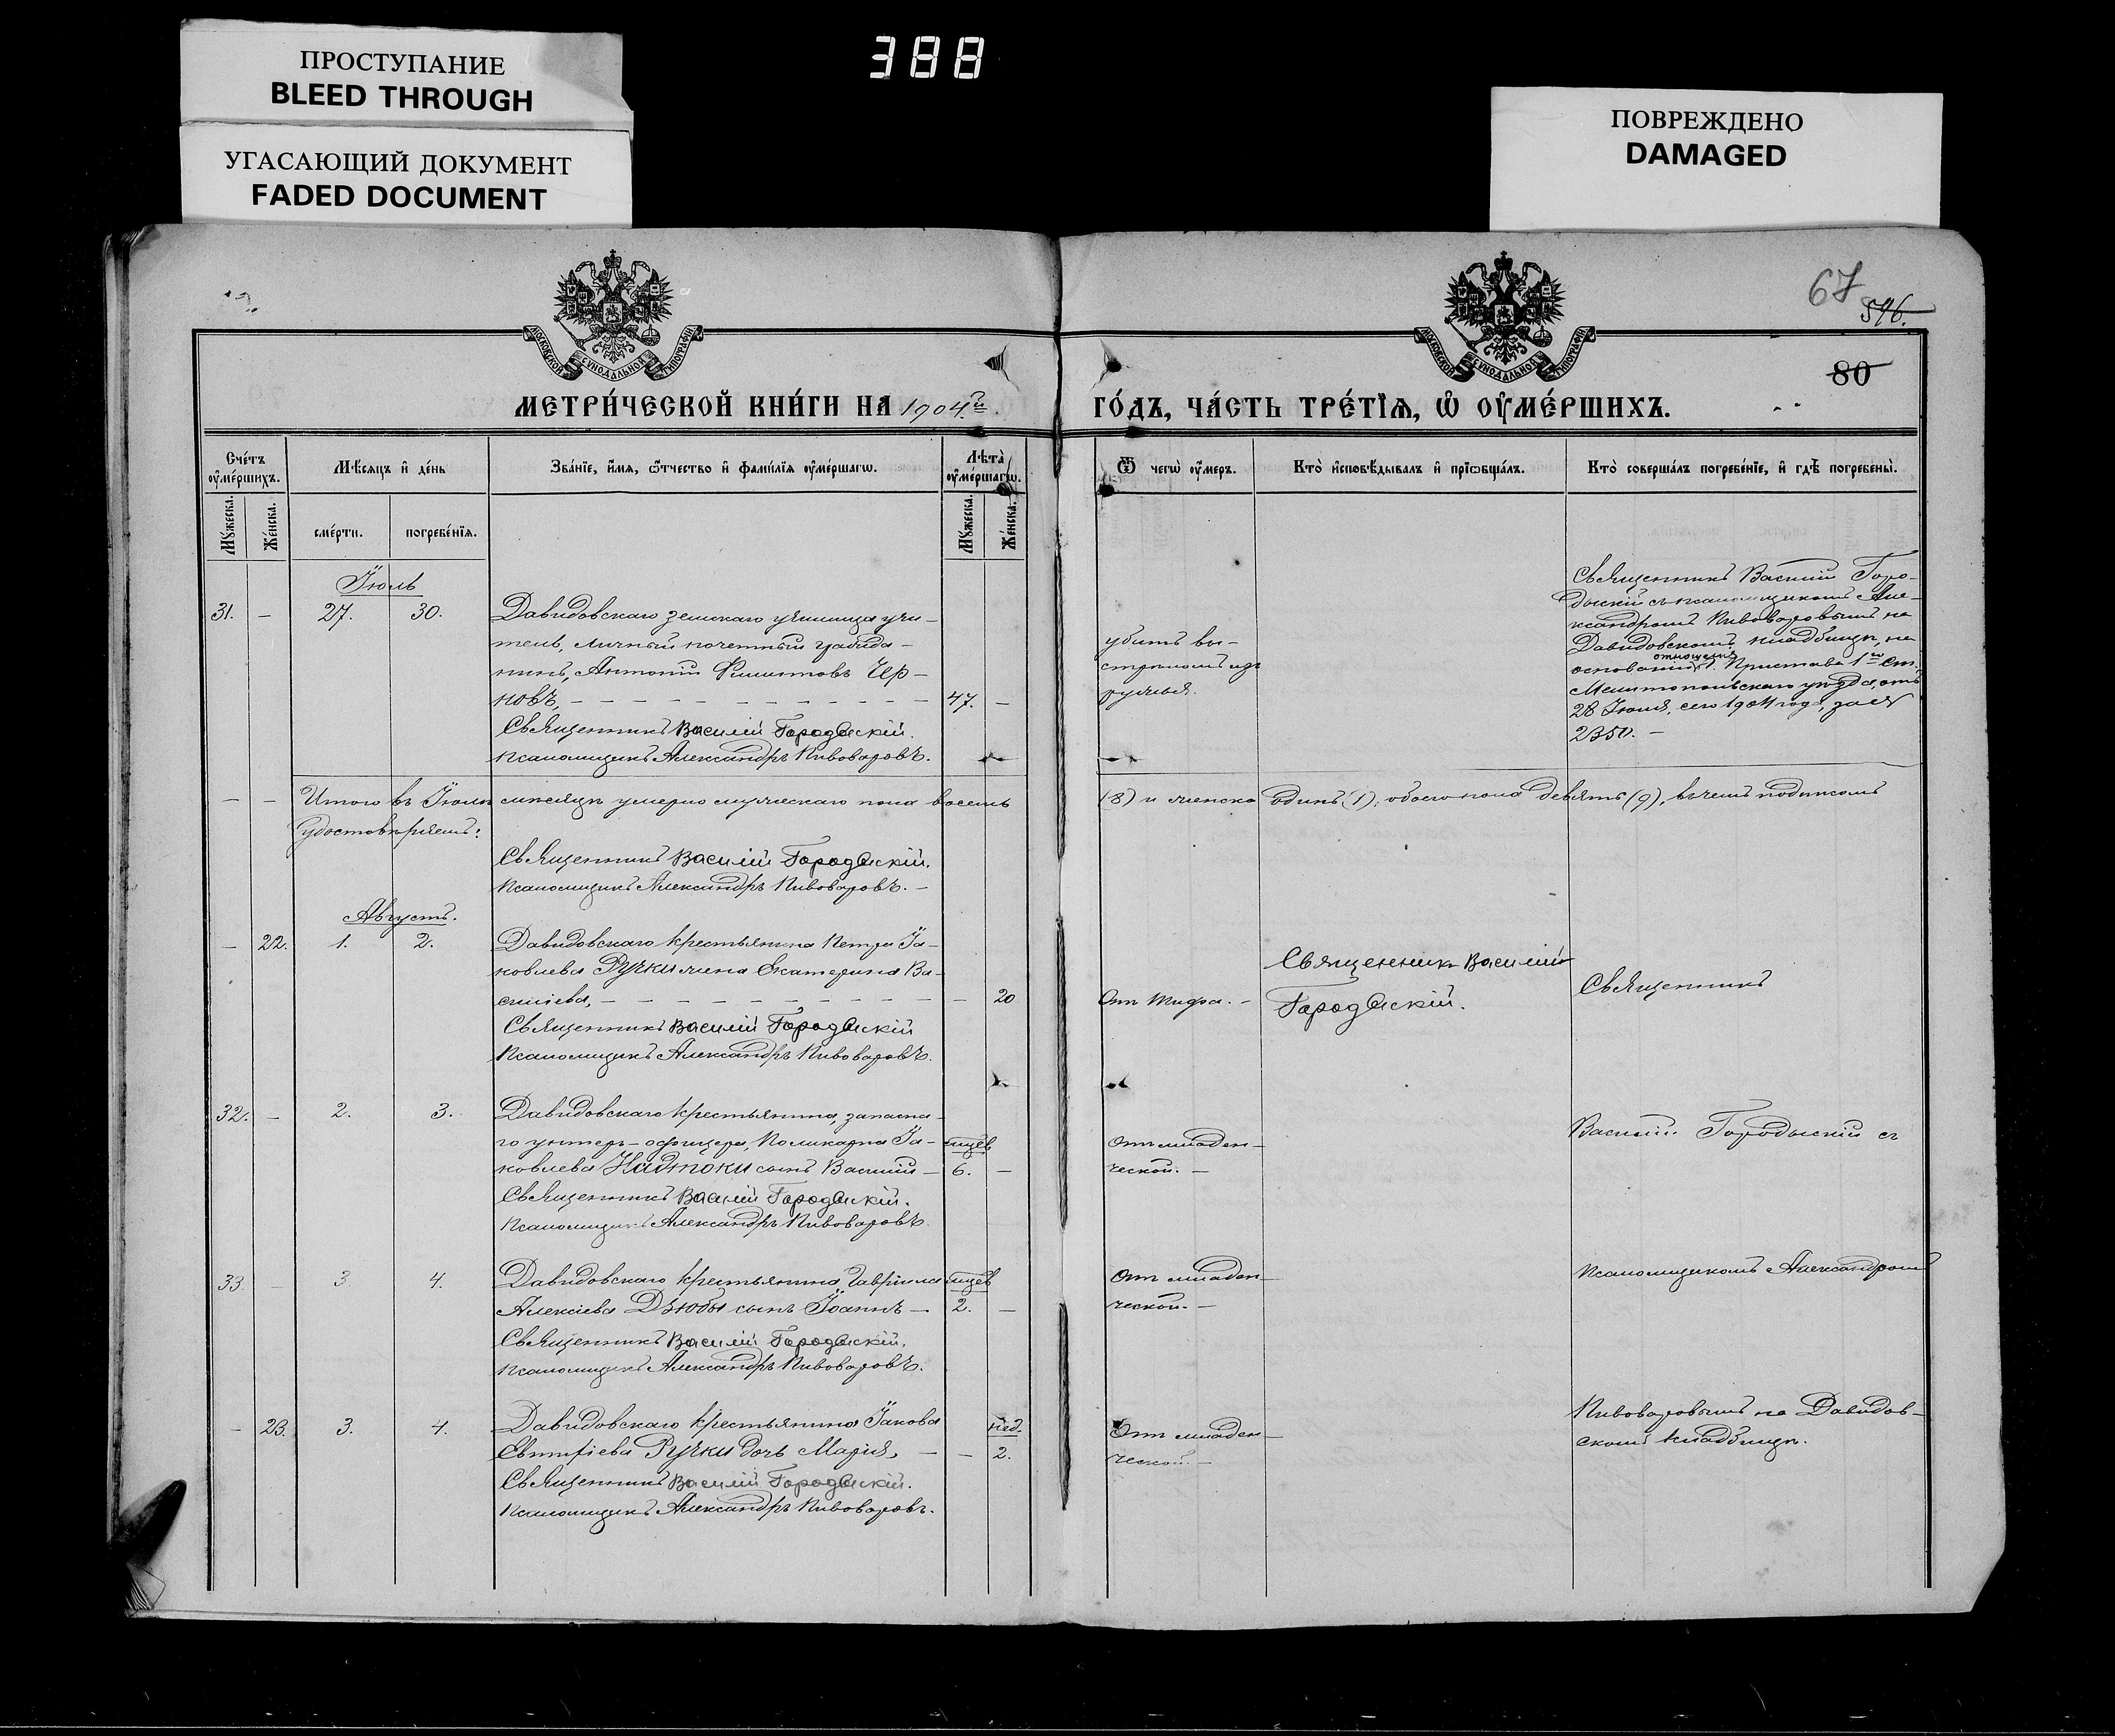 388
ПРОСТУПАНИЕ
BLEED THROUGH
УГАСАЮЩИЙ ДОКУМЕНТ
FADED DOCUMENT
ПОВРЕЖДЕНО
DAMAGED
67
596.
80
МОСКОВСКОЙ СѴНОДАЛЬНОЙ ТИПОГРАФІИ
МОСКОВСКОЙ СѴНОДАЛЬНОЙ ТИПОГРАФІИ
МЕТРИ́ЧЕСКОЙ КНИ́ГИ НА 1904й.
ГО́ДЪ, ЧА́СТЬ ТРЕ́ТІѦ, Ѡ҆ ОУ҆МЕ́РШИХЪ.
Сче́тъ оу҆ме́ршихъ.
Мѣ́сяцъ и҆ де́нь
Зва́нїе, и҆́мѧ, ѻ҆́тчество и҆ фами́лїѧ оу҆ме́ршагѡ.
Лѣ́та оу҆ме́ршагѡ.
Ѿ чегѡ̀ оу҆́меръ.
Кто̀ и҆сповѣ́дывалъ и҆ прїѡбща́лъ.
Кто̀ соверша́лъ погребе́нїе, и҆ гдѣ̀ погребены̀.
Мꙋ́жеска.
Же́нска.
сме́рти.
погребе́нїѧ.
Мꙋ́жеска.
Же́нска.
Іюль
31. – 27. 30.
Давидовскаго земскаго училища учи-
тель, личный почетный гражда-
нинъ, Антоній Филиповъ Чер-
новъ, – 47. –
Священникъ Василій Городыскій.
Псаломщикъ Александръ Пивоваровъ.
убитъ вы-
стрѣломъ изъ
ружья.
Священникъ Василій Горо-
дыскій съ псаломщикомъ Але-
ксандромъ Пивоваровымъ на
Давидовскомъ кладбищѣ, на
основаніи отношенія г. Пристава 1го ст.
Мелитопольскаго уѣзда, отъ
28 Іюля, сего 1904 года, за №
2350. –
– – Итого въ Іюлѣ мѣсяцѣ умерло мужескаго пола восемь (8) и женска одинъ (1), обоего пола девять (9), въ чемъ подписомъ
удостовѣряемъ:
Священникъ Василій Городыскій.
Псаломщикъ Александръ Пивоваровъ. –
Августъ.
– 22. 1. 2.
Давидовскаго крестьянина Петра Іа-
ковлева Ручки жена Екатерина Ва-
силіева, – – 20
Священникъ Василій Городыскій
Псаломщикъ Александръ Пивоваровъ.
Отъ тифа. –
Священникъ Василій
Городыскій.
Священникъ
32. – 2. 3.
Давидовскаго крестьянина, запасна-
го унтеръ-офицера, Поликарпа Іа-
ковлева Надтоки сынъ Василій –
мцев
6. –
Священникъ Василій Городыскій.
Псаломщикъ Александръ Пивоваровъ
Отъ младен-
ческой. –
Василій Городыскій съ
33. – 3. 4.
Давидовскаго крестьянина Гавріила
Алексіева Дзюбы сынъ Іоаннъ –
мцев
2. –
Священникъ Василій Городыскій.
Псаломщикъ Александръ Пивоваровъ.
Отъ младен-
ческой. –
Псаломщикомъ Александромъ
– 23. 3. 4.
Давидовскаго крестьянина Іакова
Ручки дочь Марія, –
нед.
– 2.
Священникъ Василій Городыскій.
Псаломщикъ Александръ Пивоваровъ.
Отъ младен-
ческой. –
Пивоваровымъ на Давидов-
скомъ кладбищѣ.